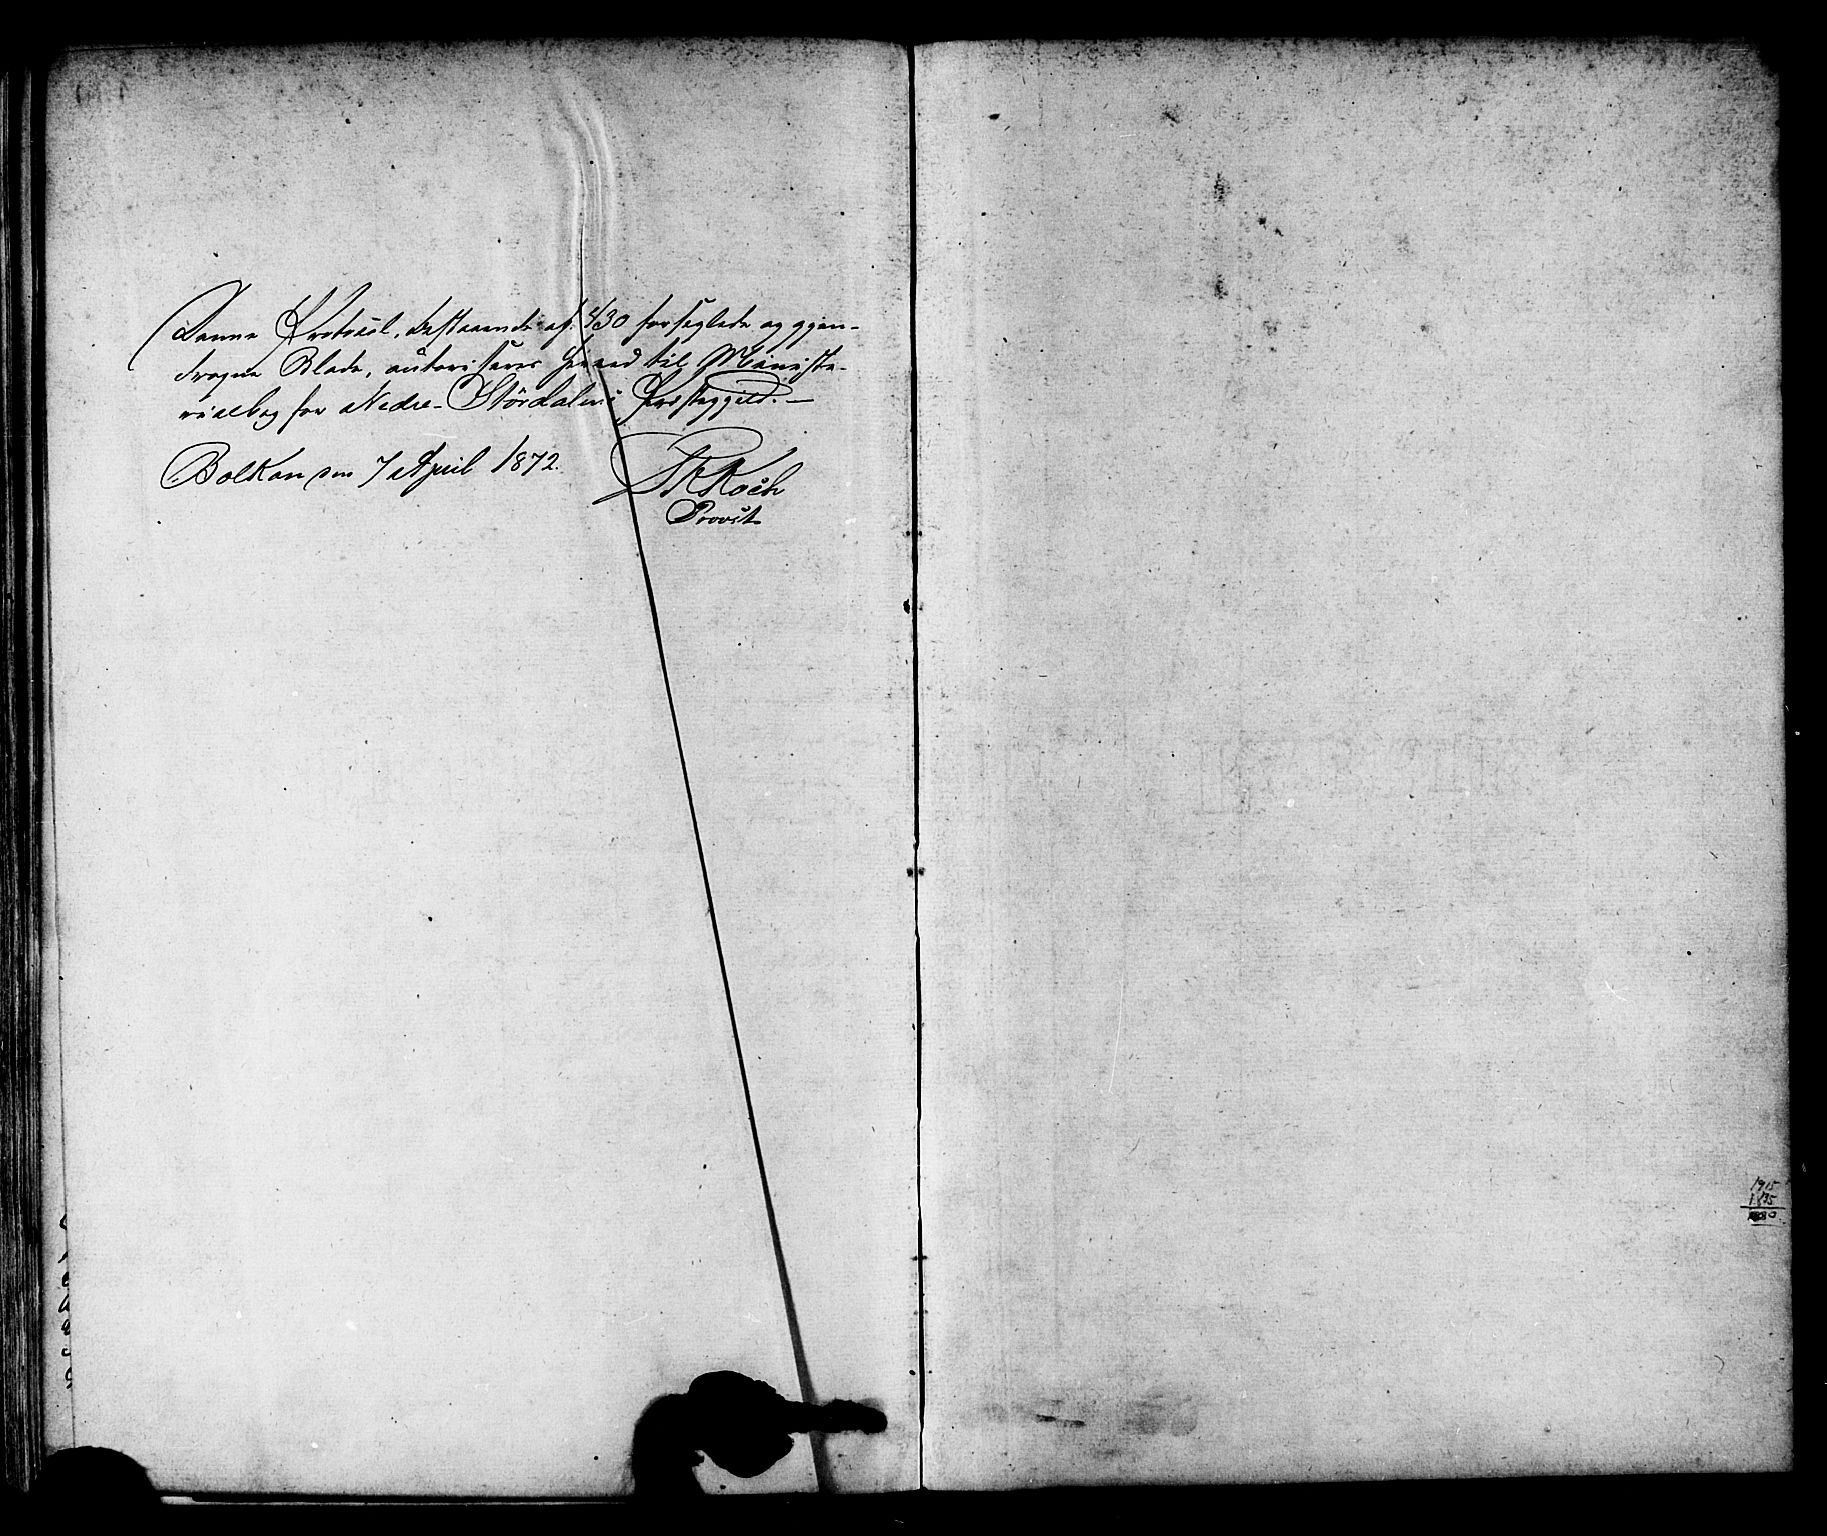 Denne Protocol, bestaaende af 430 forseglede og gjen-
dragne Blade, autoriseres herved til Ministe-
rialbog for Nedre-Stördalens Præstegjeld. —
Balkan den 7 April 1872.
Koch
Provst
1915
1835